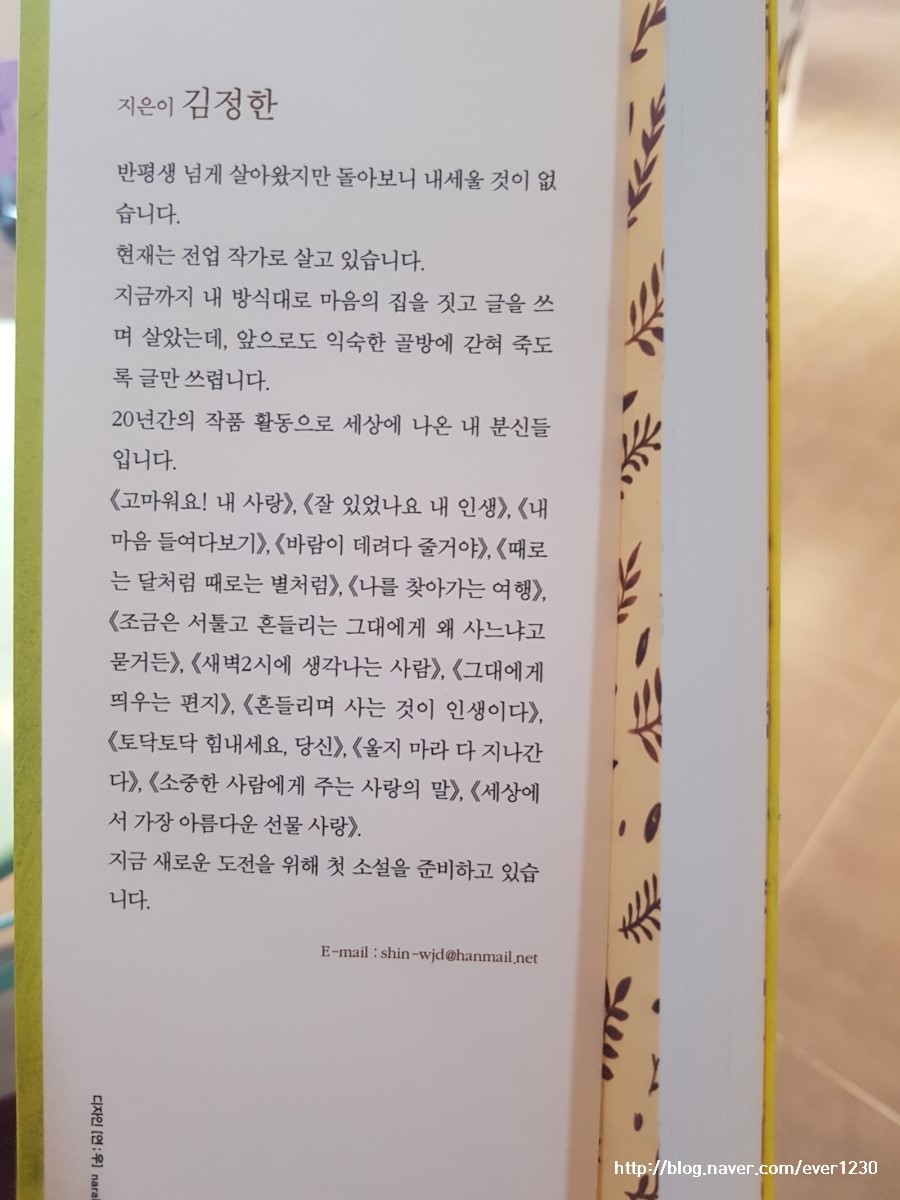 지은이 김정한
반평생 넘게 살아왔지만 돌아보니 내세울 것이 없
습니다.
현재는 전업 작가로 살고 있습니다.
지금까지 내 방식대로 마음의 집을 짓고 글을 쓰
며 살았는데, 앞으로도 익숙한 골방에 갇혀 죽도
록 글만 쓰렵니다.
20년간의 작품 활동으로 세상에 나온 내 분신들
입니다.
《고마워요! 내 사랑》, 《잘 있었나요 내 인생》, 《내
마음 들여다보기》, 《바람이 데려다 줄거야》, 《때로
는 달처럼 때로는 별처럼》, 《나를 찾아가는 여행》,
《조금은 서툴고 흔들리는 그대에게 왜 사느냐고
묻거든》, 《새벽2시에 생각나는 사람》, 《그대에게
띄우는 편지》, 《흔들리며 사는 것이 인생이다》,
《토닥토닥 힘내세요, 당신》, 《울지 마라 다 지나간
다》, 《소중한 사람에게 주는 사랑의 말》, 《세상에
서 가장 아름다운 선물 사랑》.
지금 새로운 도전을 위해 첫 소설을 준비하고 있습
니다.
E-mail : shin-wjd@hanmail.net
디자인 [연;우]
http://blog.naver.com/ever1230